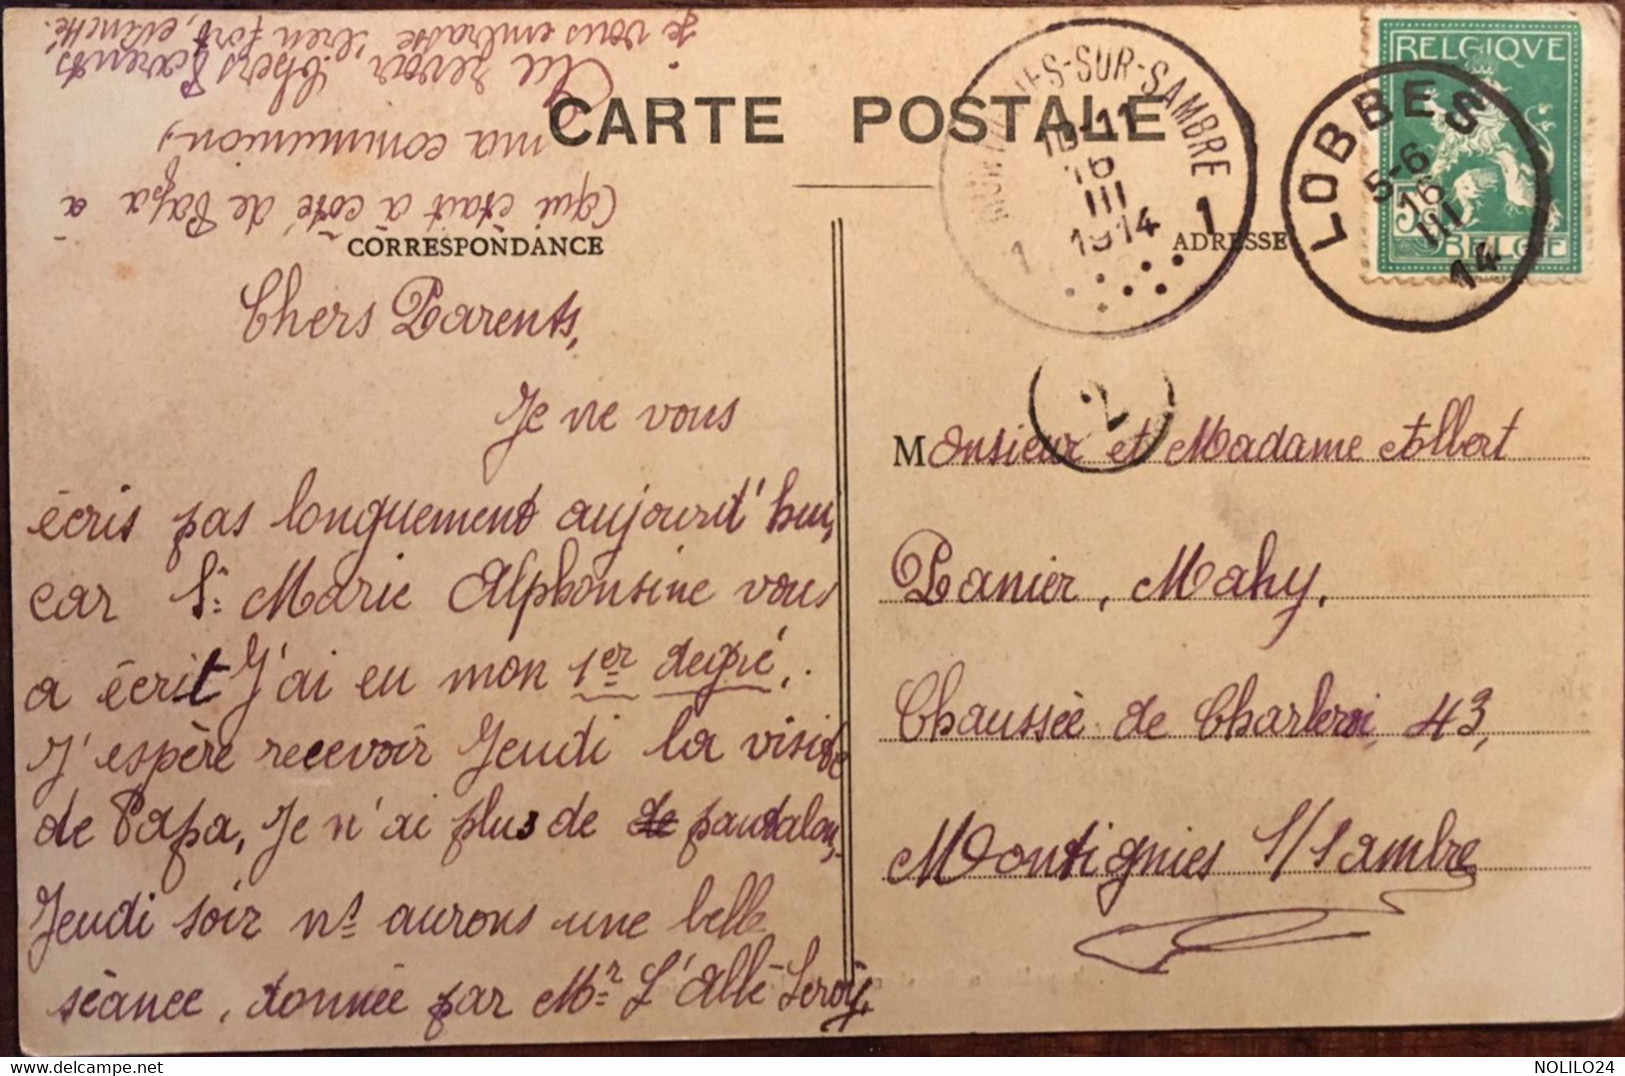 CARTE POSTALE
CORRESPONDANCE
ADRESSE
BELGIQVE
5c
BELGIE
LOBBES
5-6
16
III
14
-SUR-SAMBRE
10-11
16
III
1914
1 1
2
Chers Parents,
Je ne vous
écris pas longuement aujourd'hui,
car Sr Marie Alphonsine vous
a écrit J'ai eu mon 1er degré.
J'espère recevoir Jeudi la visite
de Papa, Je n'ai plus de de pantalon,
Jeudi soir ns aurons une belle
séance, donnée par Mr L'Abbé Leroy,
(qui était à côté de Papa à
ma communion)
Au revoir, Chers Parents
je vous embrasse bien fort,
Monsieur et Madame Albert
Panier, Mahy,
Chaussée de Charleroi, 43,
Montignies S/Sambre
NOLILO24